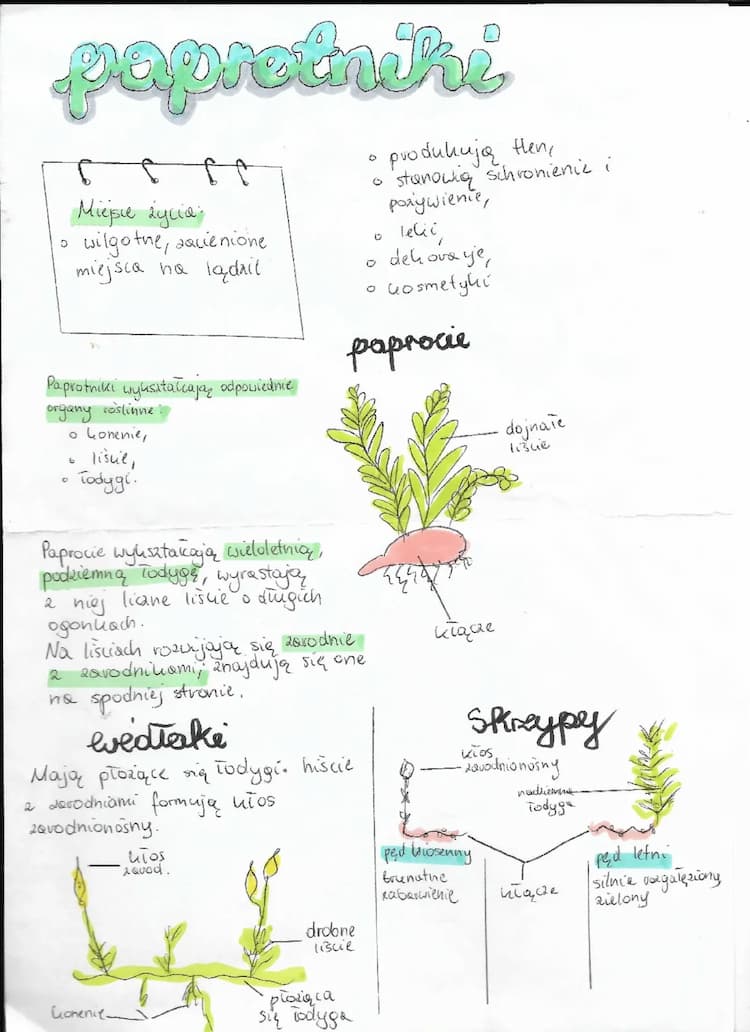 paprotniki
Miejsce życia:
o wilgotne, zacienione
miejsca na lądzie
o produkują tlen,
o stanowią schronienie i
pożywienie,
o leki,
o dekoracje,
o kosmetyki
Paprotniki wykształcają odpowiednie
organy roślinne:
o korzenie,
o liście,
o łodygi.
paprocie
dojrzałe
liście
kłącze
Paprocie wykształcają wieloletnią,
podziemną łodygę, wyrastają
z niej liczne liście o długich
ogonkach.
Na liściach rozwijają się zarodnie
z zarodnikami, znajdują się one
na spodniej stronie.
widłaki
Mają płożące się łodygi. Liście
z zarodniami formują kłos
zarodnionośny.
kłos
zarod.
drobne
liście
korzenie
płożąca
się łodyga
skrzypy
kłos
zarodnionośny
nadziemna
łodyga
pęd wiosenny
brunatne
zabarwienie
kłącze
pęd letni
silnie rozgałęziony
zielony